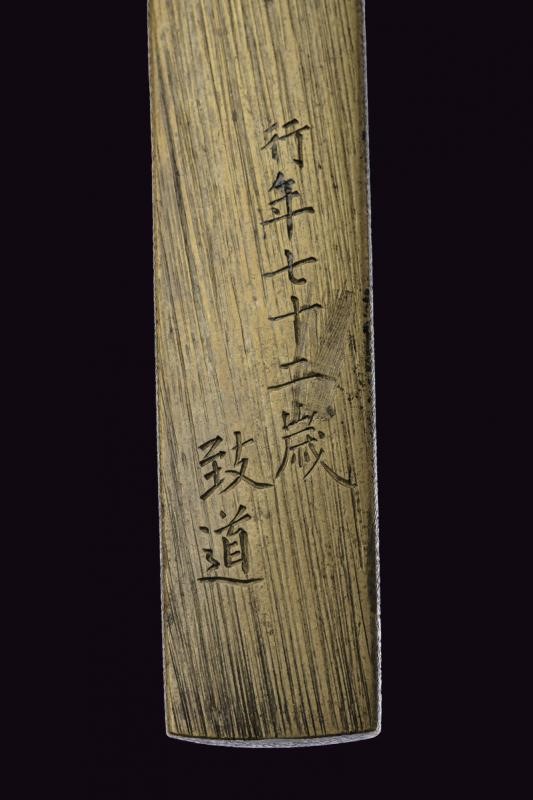 行年七十二歳
致道